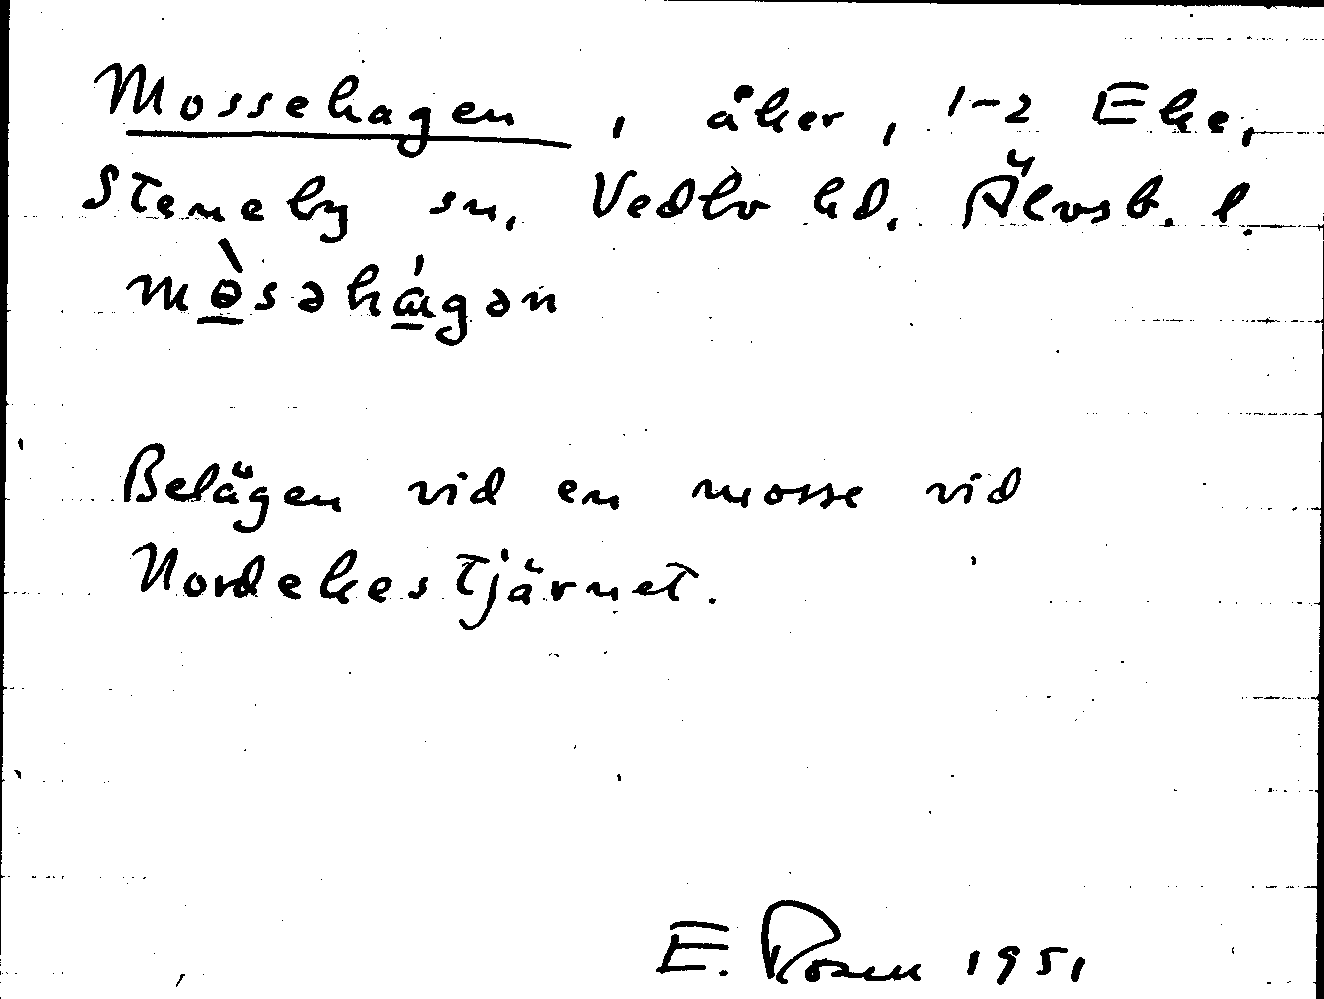 Mossehagen, åker, 1-2 Eke,
Steneby sn, Vedbo hd. Älvsb. l.
mɵ̀səhɑ́gən
Belägen vid en mosse vid
Nordekestjärnet.
E. Rosen 1951